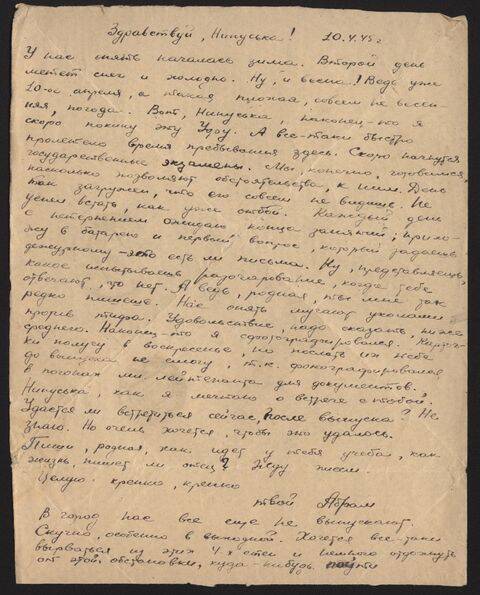 Здравствуй, Нинуська! 10.4.45 г
У нас опять началась зима. Второй день
метет снег и холодно. Ну, и весна! Ведь уже
10-ое апреля, а такая плохая, совсем не весен-
няя, погода. Вот, Нинуська, наконец-то я
скоро покину эту Уфу. А все-таки быстро
пролетело время пребывания здесь. Скоро начнутся
государственные экзамены. Мы, конечно, готовимся,
насколько позволяют обстоятельства, к ним. День
так загружен, что его совсем не видишь. Не
успел встать, как уже отбой. Каждый день
с нетерпением ожидаю конца занятий; прихо-
жу в батарею и первый вопрос, который задаешь
дежурному - есть ли письма. Ну, представляешь,
какое испытываешь разочарование, когда тебе
отвечают, что нет. А ведь, родная, ты мне так
редко пишешь. Нас опять мучают уколами
против тифа. Удовольствие, надо сказать, ниже
среднего. Наконец-то я сфотографировался. Карточ-
ки получу в воскресенье, но послать их тебе
до выпуска не смогу, т.к. фотографировался
в погонах мл. лейтенанта для документов.
Нинуська, как я мечтаю о встрече с тобой.
Удастся ли встретиться сейчас, после выпуска? Не
знаю. Но очень хочется, чтобы это удалось.
Пиши, родная, как идет у тебя учеба, как
жизнь, пишет ли отец? Жду писем.
Целую крепко, крепко
твой Абрам
В город нас все еще не выпускают.
Скучно, особенно в выходной. Хочется все-таки
вырваться из этих 4х стен и немного отдохнуть
от этой обстановки, куда-нибудь пойти